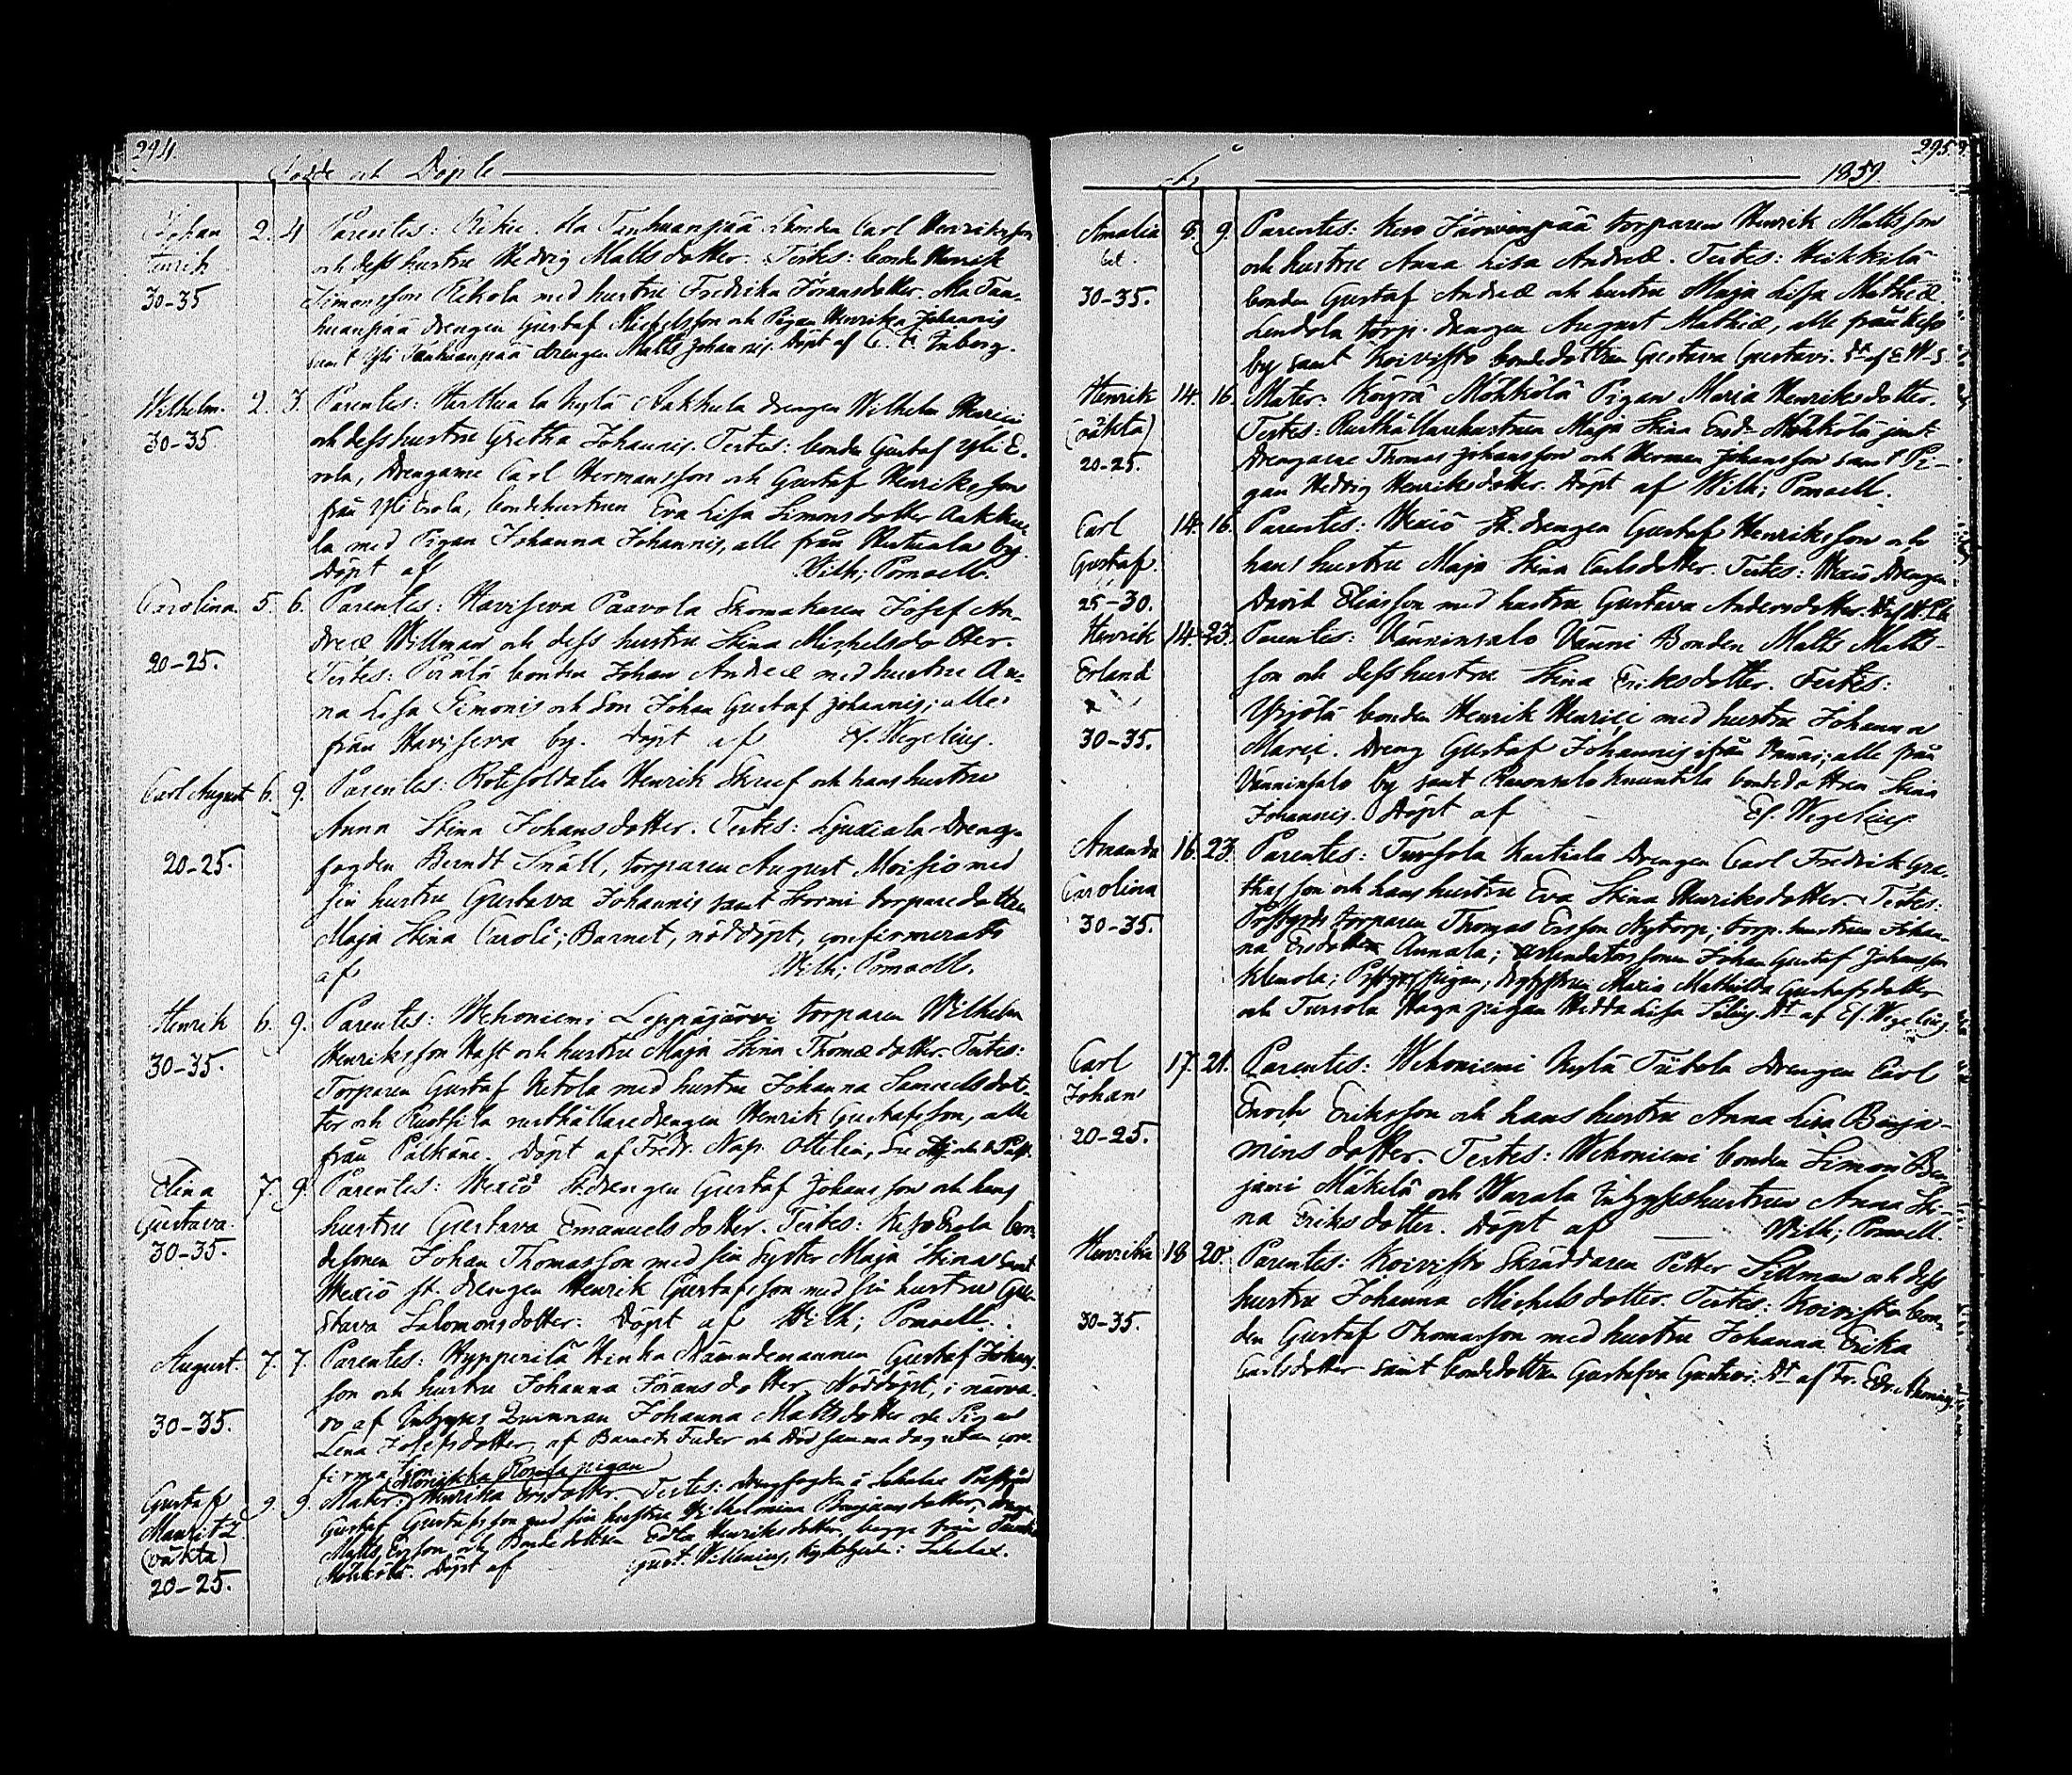 294.
Födde och Döpte
Johan 2. 4 Parentes: Ala Tanhuanpää bonden Carl Henriksson
Henrik och dess hustru Hedvig Mattsdotter. Testes: bonden Henrik
30-35 Simonsson Rekola med hustru Fredrika Göransdotter. Ala Tan-
huanpää drengen Gustaf Michelsson och Pigan Henrika Johannis
samt Yli Tanhuanpää drengen Matts Johannis. Döpt af
Wilhelm. 2. 3. Parentes: la Kylä Aakkula drengen Wilhelm Henrici
30-35 och dess hustru Gretha Johannis. Testes: bonden Gustaf Yli E-
rola, Drengarne Carl Hermansson och Gustaf Henriksson
från Yli Erola, bondehustrun Eva Lisa Simonsdotter Aakku-
la med Pigan Johanna Johannis, alle från by.
Döpt af Wilh; Pomoell.
Carolina 5. 6. Parentes: Havisewa Paavola Skomakaren Josef An-
dreæ Willman och dess hustru Stina Michelsdotter.
20-25. Testes: Perälä bonden Johan Andreæ med hustru An-
na Lisa Simonis och Son Johan Gustaf Johannis; alle
från Havisewa by. Döpt af Ef. Wegelius.
Carl August 6. 9. Parentes: Rotesoldaten Henrik Skruf och hans hustru
Anna Stina Johansdotter. Testes: Liuxiala Dreng-
20-25. fogden Berndt Snäll, torparen August Moisio med
sin hustru Gustava Johannis samt Stormi torparedottren
Maja Stina Caroli; Barnet, nöddöpt, confirmerats
af Wilh; Pomoell.
Henrik 6. 9. Parentes: Wehoniemi Leppäjärvi torparen Wilhelm
30-35. Henriksson Hast och hustru Maja Stina Thomædotter. Testes:
Torparen Gustaf Ketola med hustru Johanna Samuelsdot-
ter och Rusthila rusthållaredrengen Henrik Gustafsson, alle
från Pälkäne. Döpt af Fredr. Nap.
Elina 7. 9. Parentes: Wexiö St. drengen Gustaf Johansson och hans
Gustava. hustru Gustava Emanuelsdotter. Testes: Erola bon-
30-35. desonen Johan Thomasson med sin Syster Maja Stina samt
Wexiö st. drengen Henrik Gustafsson med sin hustru Gu-
stava Salomonsdotter: Döpt af Wilh; Pomoell.
August. 7. 7. Parentes: Hypperilä Hinka Nämndemannen Gustaf Johans-
son och hustru Johanna Göransdotter. Nöddöpt, i närva-
30-35. ro af Inhyses Quinnan Johanna Mattsdotter och Pigan
Lena Josefsdotter, af Barnets Fader och död samma dag utan con-
firmation.
Gustaf 9. 9. Mater: pigan Henrika Ersdotter. Testes: drengfogden i Sahalax
Mauritz Gustaf Gustafsson med sin hustru Wilhelmina Benjamsdotter, dreng
(oäkta) Matts Ersson och Bondedottren Edla Henriksdotter, begge från
20-25. Möhkölä. Döpt af Gust. Willenius, Sahalax.
295.
1859.
Amalia 8. 9. Parentes: Keso Järwenpää torparen Henrik Mattsson
och hustru Anna Lisa Andreæ. Testes: Heikkilä
30-35. bonden Gustaf Andreæ och hustru Maja Lisa Mathiæ.
torp. drengen August Mathiæ, alle från Keso
by samt Koivisto bondedottren Gustava Gustavi.
Henrik 14. 16. Mater: Köyrä Möhkölä Pigan Maria Henriksdotter.
(oäkta) Testes: Rusthållarehustrun Maja Stina Möhkölä jemte
20-25. drengarne Thomas Johansson och Herman Johansson samt Pi-
gan Hedvig Henriksdotter. Döpt af Wilh; Pomoell.
Carl 14. 16. Parentes: Wexiö St. drengen Gustaf Henriksson och
Gustaf. hans hustru Maja Stina Carlsdotter. Testes: Wexiö drengen
25-30. David Eliasson med hustru Gustava Andersdotter.
Henrik 14. 23. Parentes: Vänninsalo Vänni Bonden Matts Matts-
Erland son och dess hustru Stina Eriksdotter. Testes:
Yrjölä bonden Henrik Henrici med hustru Johanna
30-35. Marci. Dreng Gustaf Johannis ifrån Vänni; alle från
Vänninsalo by samt bondedottren Stina
Johannis. Döpt af Ef. Wegelius
Amanda 16. 23. Parentes: Tursola Kartiala drengen Carl Fredrik Gra-
Carolina thusson och hans hustru Eva Stina Henriksdotter. Testes:
30-35. torparen Thomas Ersson Nytorp; torp. hustrun Johan-
na Ersdotter Annala; arrendators sonen Johan Gustaf Johansson
Klemola; pigan, Maria Mathilda Gustafsdotter
och Tursola Haga pigan Hedda Lisa Silius. Dt. af Ef. Wegelius.
Carl 17. 21. Parentes: Wehoniemi Kylä Drengen Carl
Johan Enoch Eriksson och hans hustru Anna Lisa Benja-
20-25. minsdotter. Testes: Wehoniemi bonden Simon Ben-
jami Mäkelä och Warala Inhyseshustrun Anna Sti-
na Eriksdotter. Döpt af Wilh; Pomoell.
Henrika 18 20. Parentes: Koivisto Skräddaren Petter Sillman och dess
hustru Johanna Michelsdotter. Testes: Koivisto bon-
30-35. den Gustaf Thomasson med hustru Johanna Erika
Carlsdotter samt bondedottren Gustafva Gustavi: Dt. af Fr. Edv.